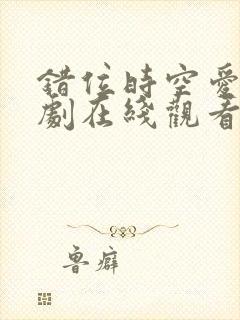 錯位時空愛
劇在綫觀看
魯癖